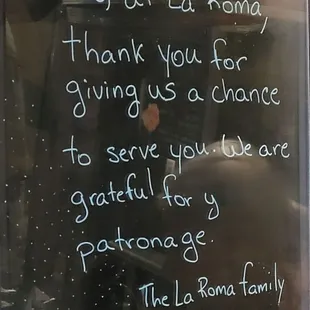 at La Roma,
thank you for
giving us a chance
to serve you. We are
grateful for y
patronage.
The La Roma family